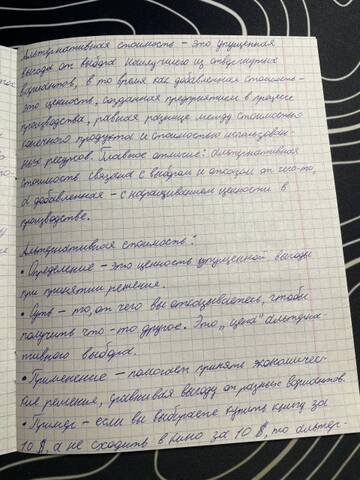 Альтернативная стоимость – это упущенная
выгода от выбора наилучшего из отвергнутых
вариантов, в то время как добавленная стоимость –
это ценность, созданная предприятием в процессе
производства, равная разнице между стоимостью
конечного продукта и стоимостью использован-
ных ресурсов. Главное отличие: альтернативная
стоимость связана с выбором и отказом от чего-то,
а добавленная – с наращиванием ценности в
производстве.
Альтернативная стоимость:
• Определение – это ценность упущенной выгоды
при принятии решения.
• Суть – то, от чего вы отказываетесь, чтобы
получить что-то другое. Это „цена" альтерна-
тивного выбора.
• Применение – помогает принять экономичес-
кие решения, сравнивая выгоду от разных вариантов.
• Пример – если вы выбираете купить книгу за
10 $, а не сходить в кино за 10 $, то альтер-